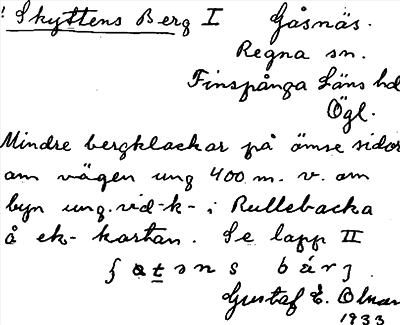 ! Skyttens Berg I Gåsnäs.
Regna sn.
Finspånga Läns hd
Ögl.
Mindre bergklackar på ömse sidor
om vägen ung 400 m. v. om
byn ung. vid -k- i Rullebacka
å ek- kartan. Se lapp II
Gustaf E.
1933